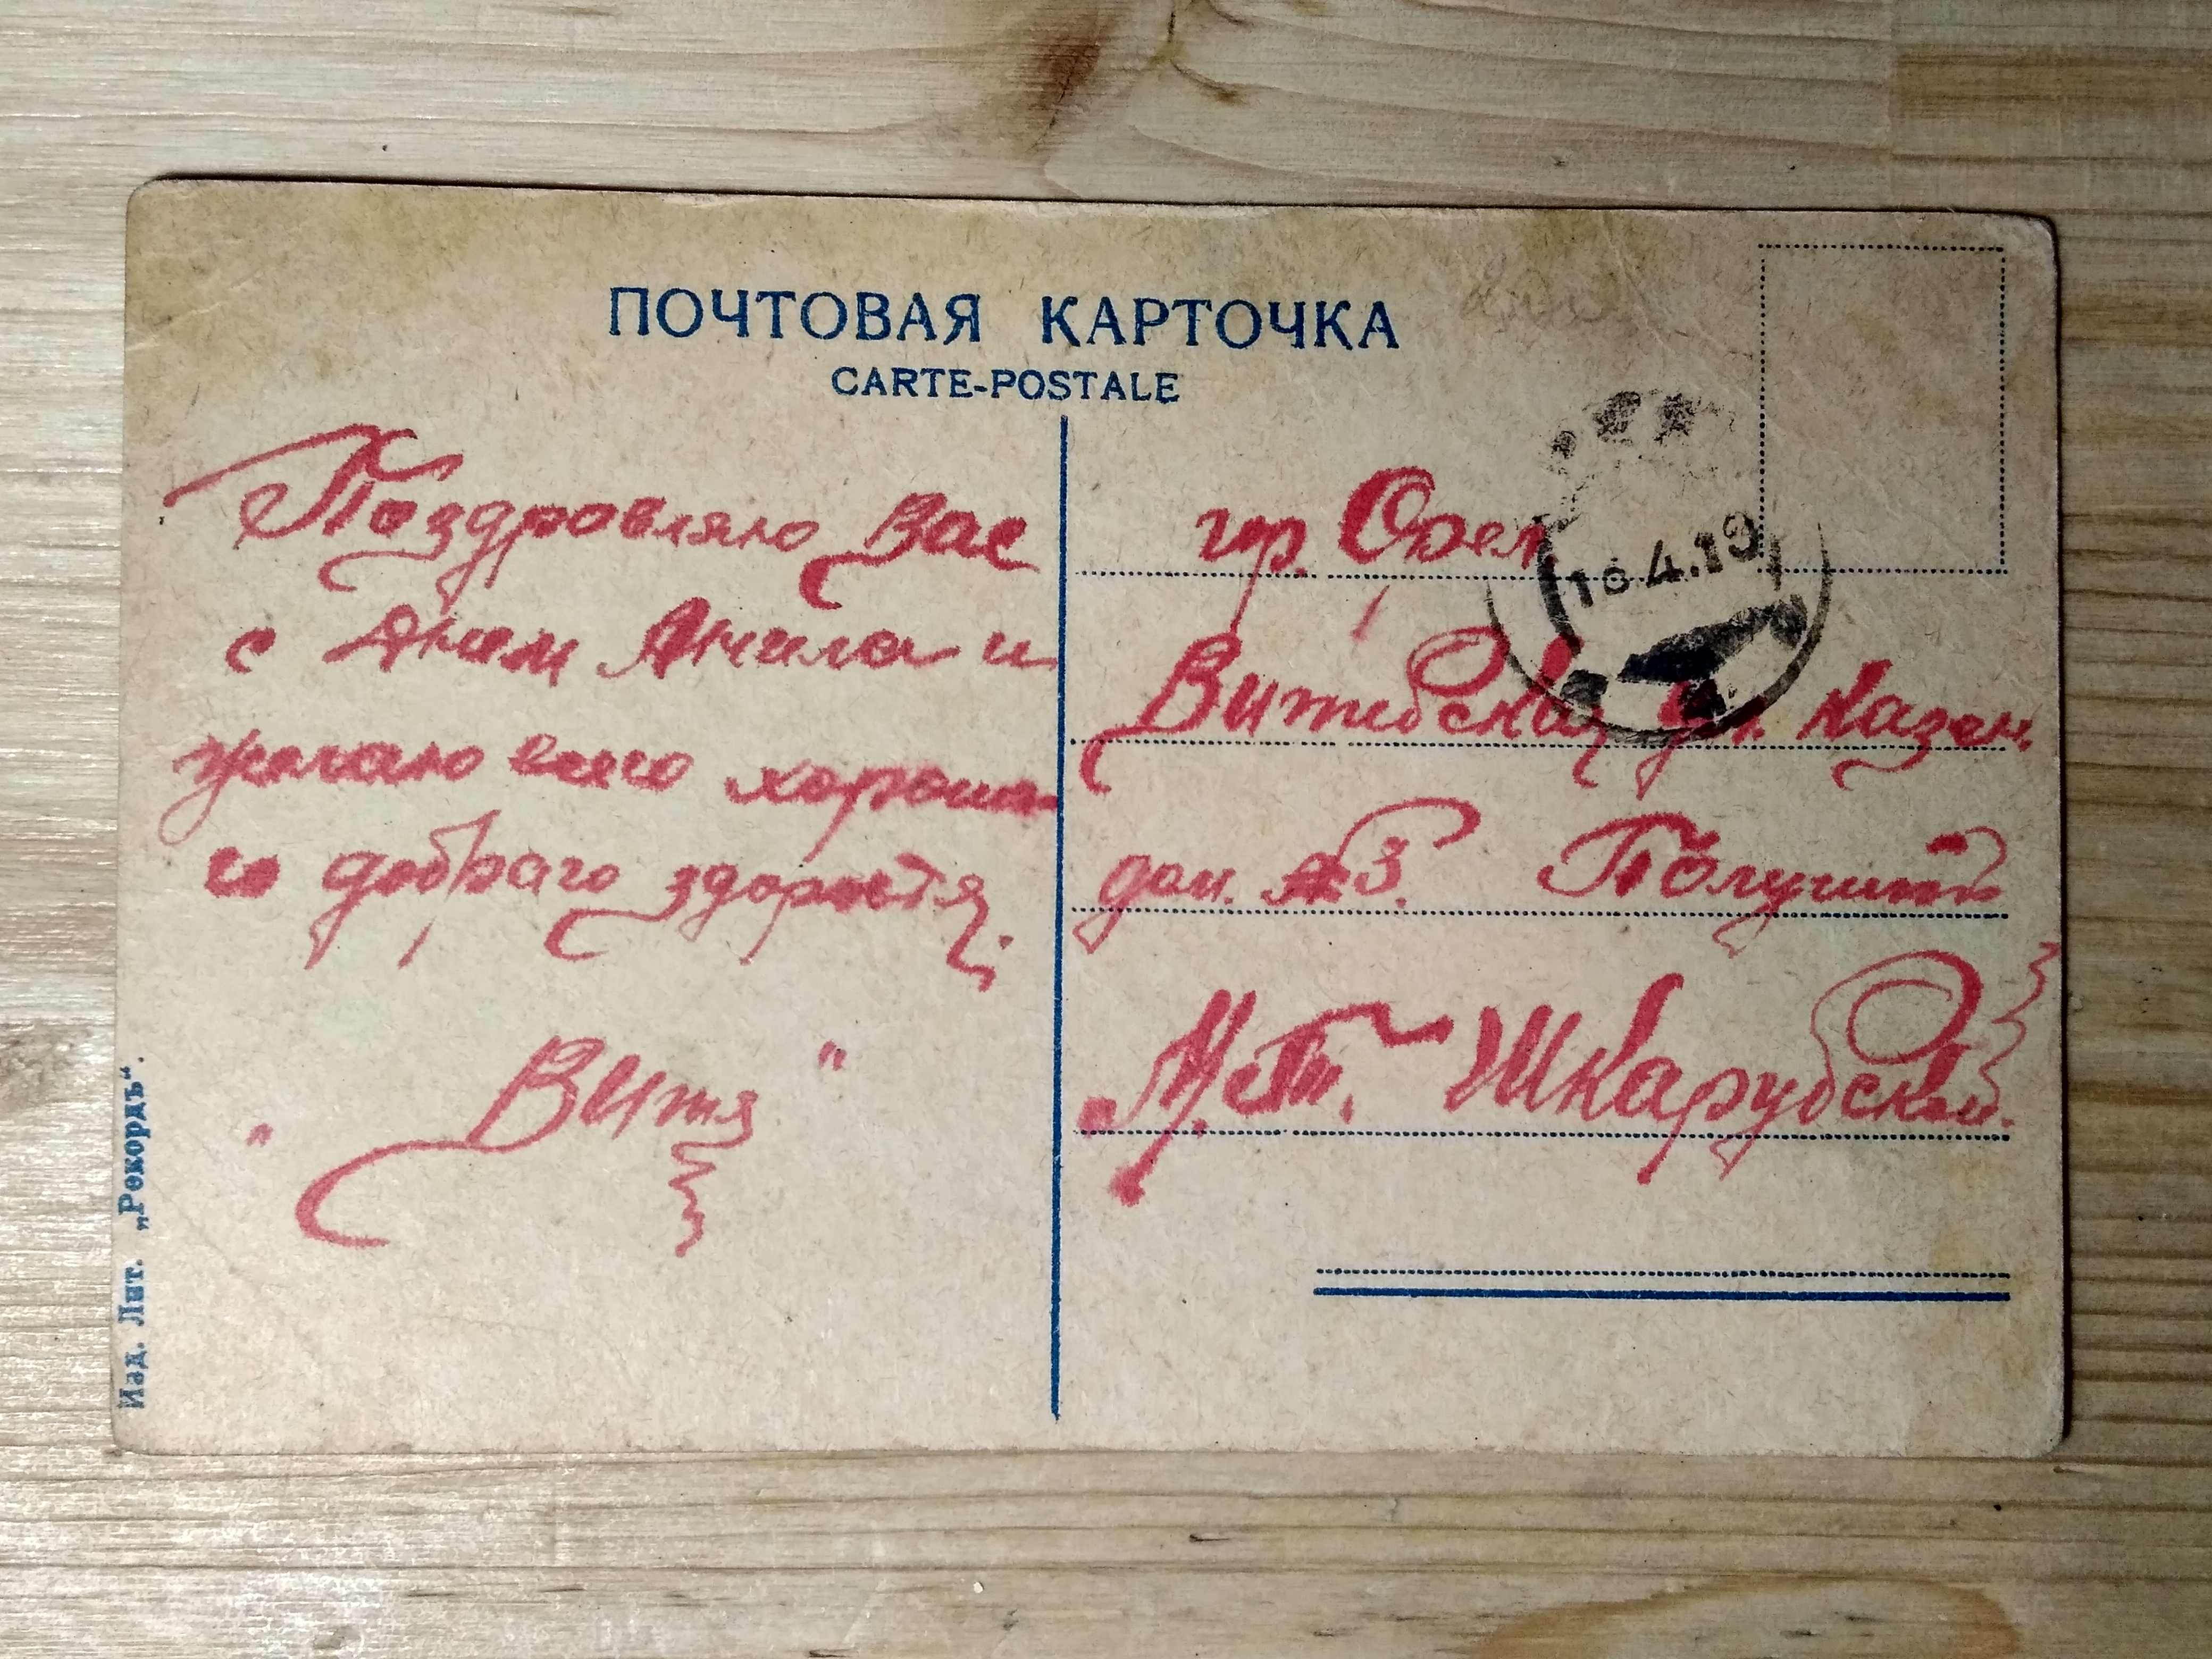 ПОЧТОВАЯ КАРТОЧКА
CARTE-POSTALE
Поздровляю Вас
с Днем Ангела и
желаю всего хороша-
го добраго здоровья.
"Витя"
гор. Орел
Витебская ул. Казен.
дом. №3. Получить
М. Т. Шкарубской.
16.4.19
Изд. Лит. „Рекордъ“.